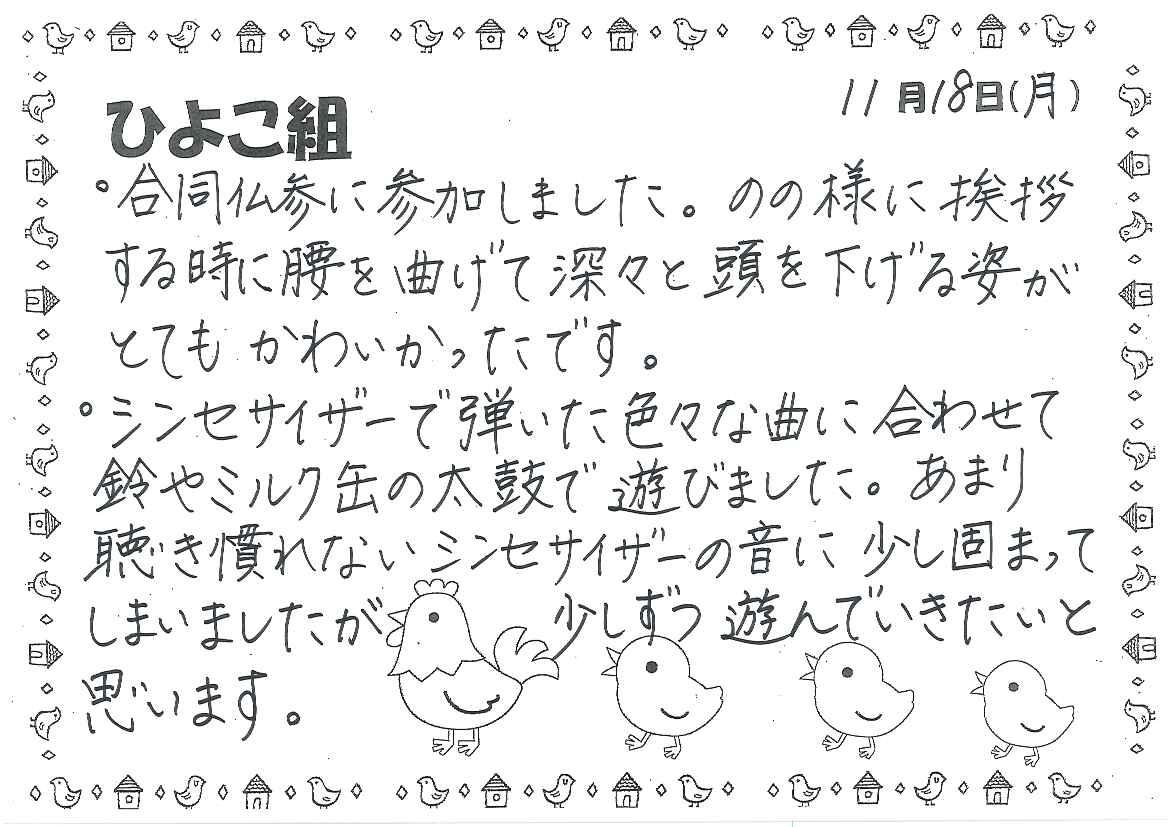 11月18日(月)
ひよこ組
・合同仏参に参加しました。のの様に挨拶
する時に腰を曲げて深々と頭を下げる姿が
とてもかわいかったです。
・シンセサイザーで弾いた色々な曲に合わせて
鈴やミルク缶の太鼓で遊びました。あまり
聴き慣れないシンセサイザーの音に少し固まって
しまいましたが少しずつ遊んでいきたいと
思います。